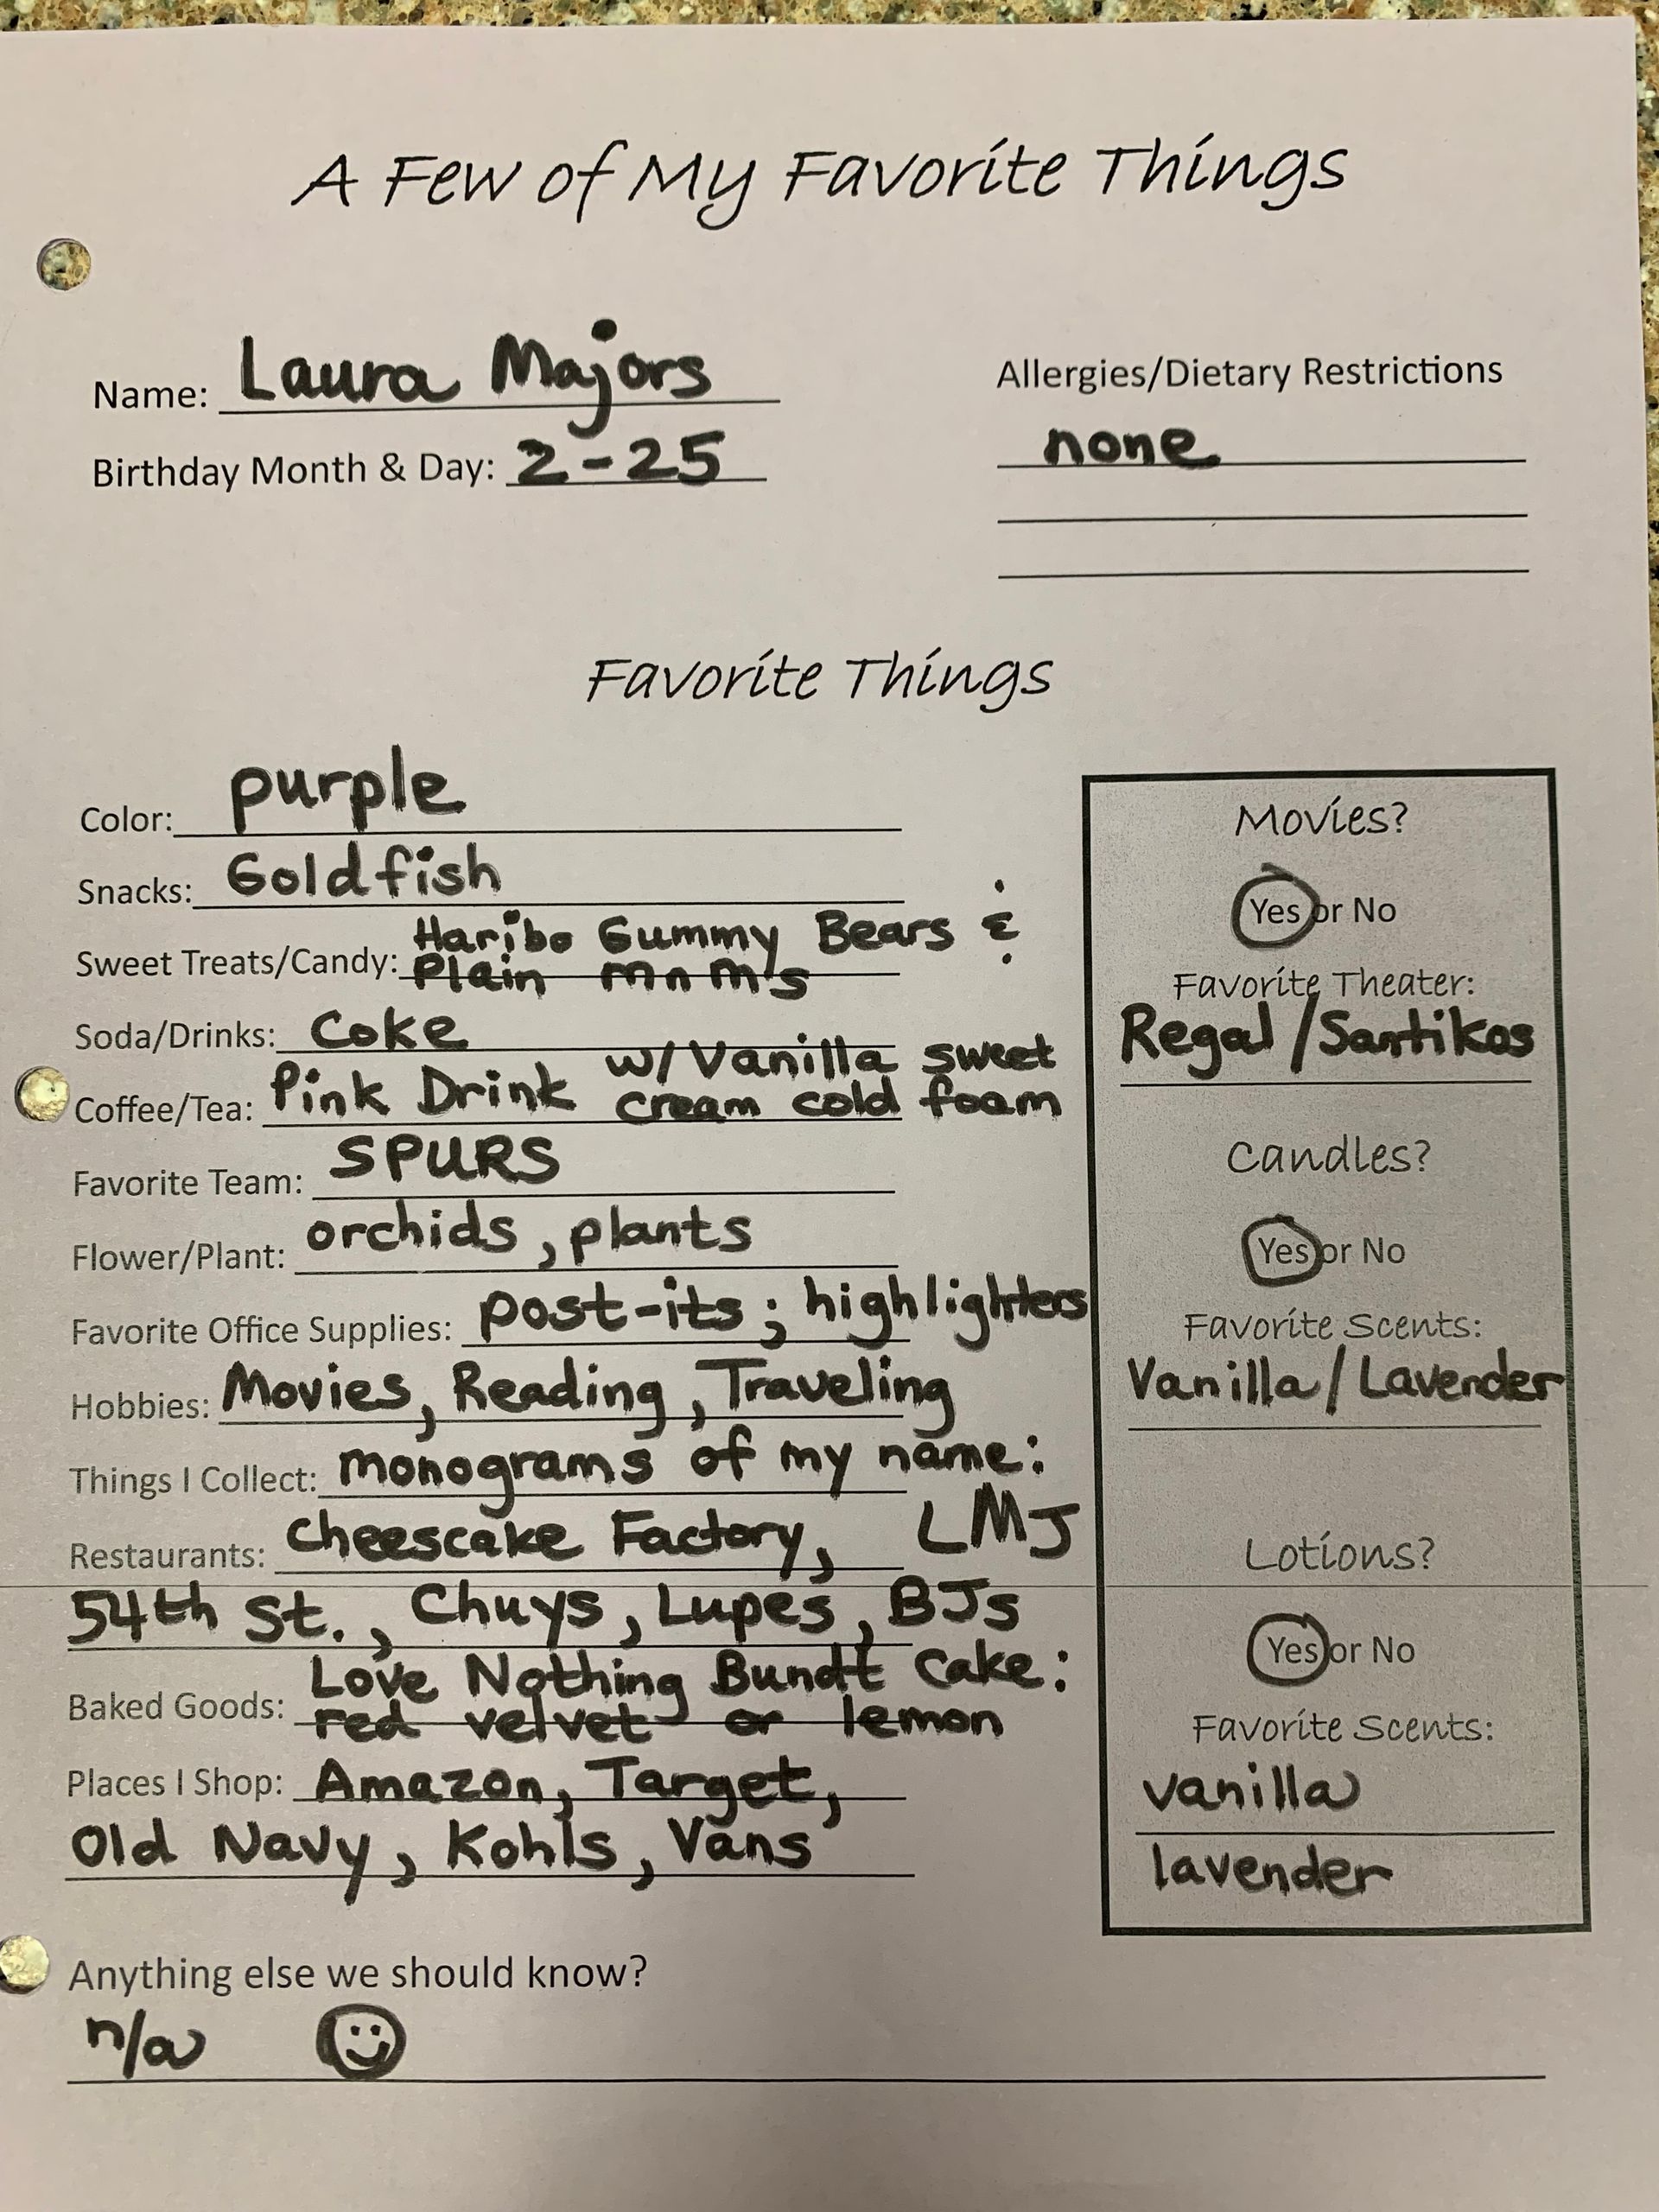 A Few of My Favorite Things
Name: Laura Majors
Birthday Month & Day: 2-25
Allergies/Dietary Restrictions
none
Favorite Things
Color: purple
Snacks: Goldfish
Sweet Treats/Candy: Haribo Gummy Bears &
Plain MnM's
Soda/Drinks: Coke
Coffee/Tea: Pink Drink w/Vanilla sweet
cream cold foam
Favorite Team: SPURS
Flower/Plant: orchids, plants
Favorite Office Supplies: post-its; highlighters
Hobbies: Movies, Reading, Traveling
Things I Collect: monograms of my name:
LMJ
Restaurants: Cheescake Factory,
54th St., Chuys, Lupes, BJs
Baked Goods: Love Nothing Bundt Cake:
red velvet or lemon
Places I Shop: Amazon, Target,
Old Navy, Kohls, Vans
Movies?
Yes or No
Favorite Theater:
Regal/Santikos
Candles?
Yes or No
Favorite Scents:
Vanilla/Lavender
Lotions?
Yes or No
Favorite Scents:
vanilla
lavender
Anything else we should know?
n/a